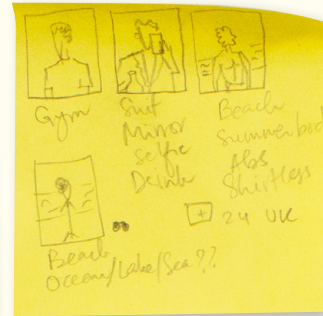 Gym
Suit
Mirror
Selfie
Drink
Beach
Summerbod
Abs
Shirtless
+ 24 UK
Beach
Ocean/Lake/Sea??